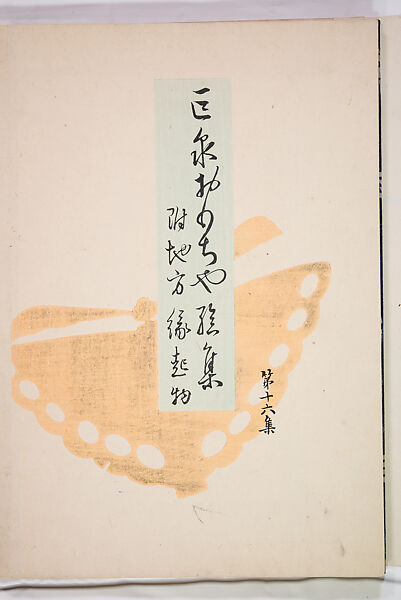 巨泉おもちや繪集
附地方縁起物
第十六集